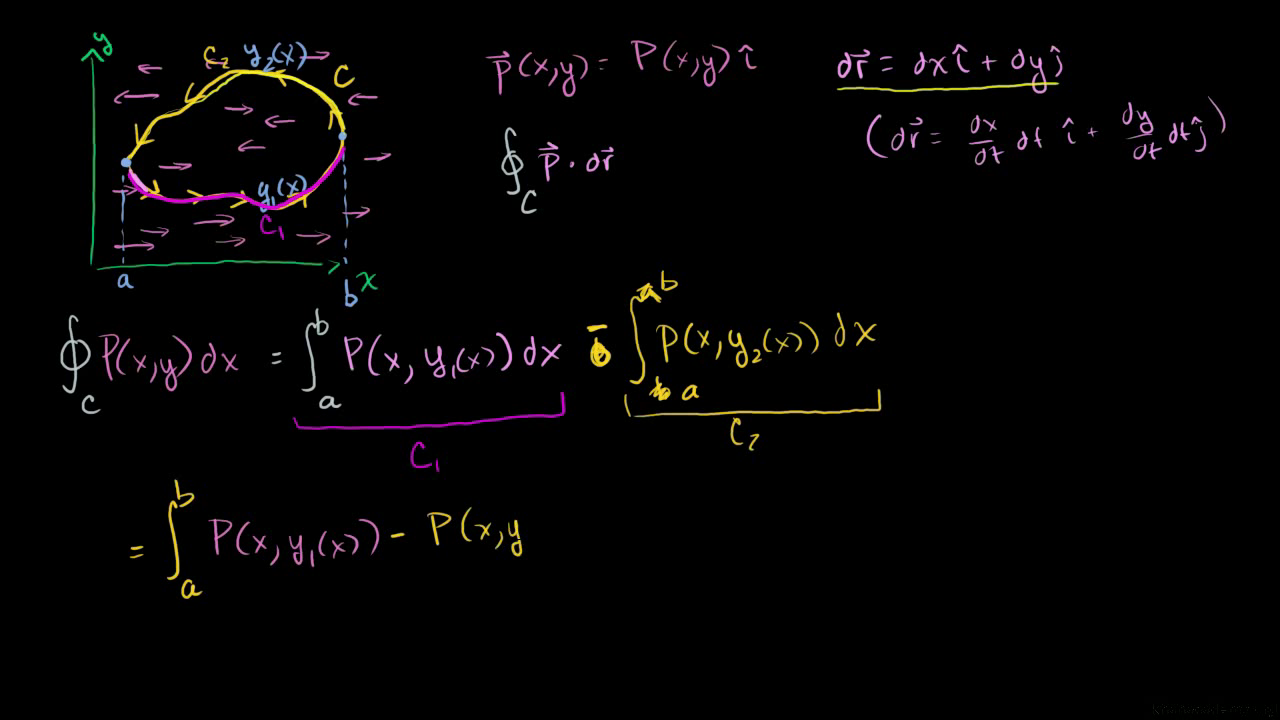 y
C₂ y₂(x)
C
y₁(x)
C₁
a
b
x
p⃗(x,y) = P(x,y) î
dr⃗ = dx î + dy ĵ
(dr⃗ = dx/dt dt î + dy/dt dt ĵ)
∮_C p⃗ · dr⃗
∮_C P(x,y) dx = ∫_a^b P(x, y₁(x)) dx - ∫_a^b P(x, y₂(x)) dx
C₁
C₂
= ∫_a^b P(x, y₁(x)) - P(x, y